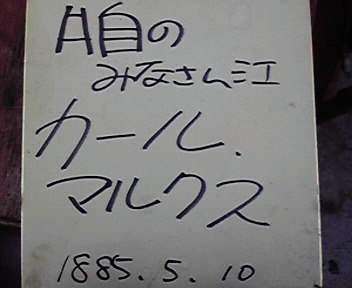 月自の
みなさん江
カール.
マルクス
1885.5.10